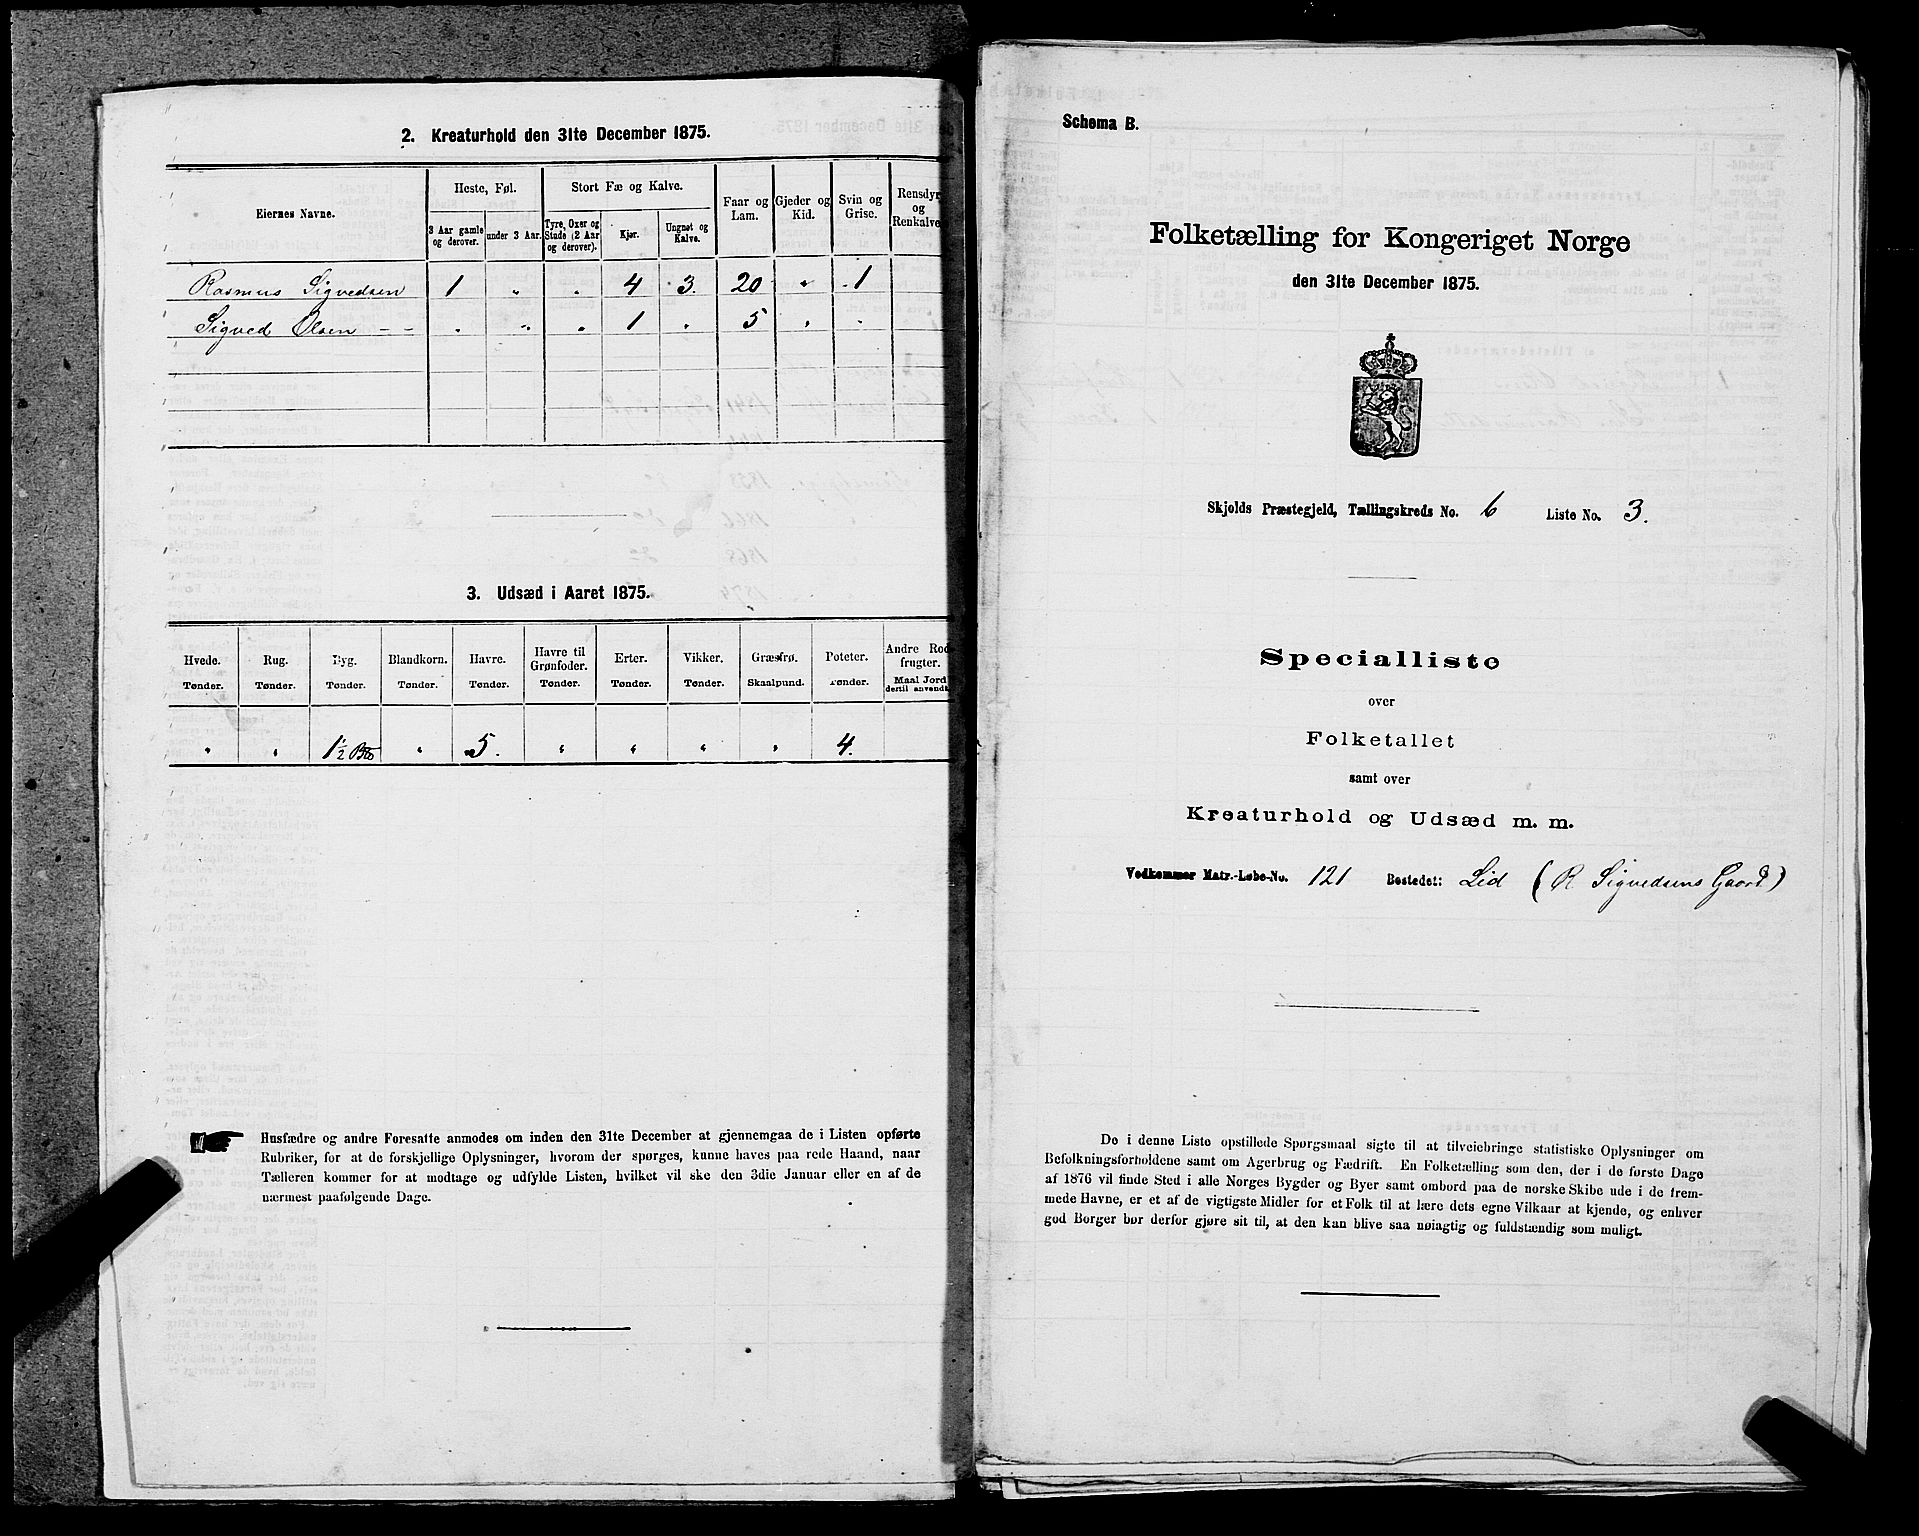 2. Kreaturhold den 31te December 1875.
Eiernes Navne.
Heste, Føl.
3 Aar gamle og derover.
under 3 Aar.
Stort Fæ og Kalve.
Tyre, Oxer og Stude (2 Aar og derover).
Kjør.
Ungnøt og Kalve.
Faar og Lam.
Gjeder og Kid.
Svin og Grise.
Rensdyr og Renkalve
Rasmus Sigvedsen 1 " " 4 3. 20 " 1
Sigved Olsen - - " " " 1 " 5 " "
3. Udsæd i Aaret 1875.
Hvede. Tønder.
Rug. Tønder.
Byg. Tønder.
Blandkorn. Tønder.
Havre. Tønder.
Havre til Grønfoder. Tønder.
Erter. Tønder.
Vikker. Tønder.
Græsfrø. Skaalpund.
Poteter. Tønder.
Andre Rod frugter. Maal Jord dertil anvendt.
" " 1½ " 5. " " " " 4.
Husfædre og andre Foresatte anmodes om inden den 31te December at gjennemgaa de i Listen opførte
Rubriker, for at de forskjellige Oplysninger, hvorom der spørges, kunne haves paa rede Haand, naar
Tælleren kommer for at modtage og udfylde Listen, hvilket vil ske den 3die Januar eller en af de
nærmest paafølgende Dage.
Schema B.
Folketælling for Kongeriget Norge
den 31te December 1875.
Skjolds Præstegjeld, Tællingskreds No. 6 Liste No. 3.
Specialliste
over
Folketallet
samt over
Kreaturhold og Udsæd m. m.
Vedkommer Matr.-Løbe-No. 121 Bostedet: Lid (R Sigvedsens Gaard)
De i denne Liste opstillede Spørgsmaal sigte til at tilveiebringe statistiske Oplysninger om
Befolkningsforholdene samt om Agerbrug og Fædrift. En Folketælling som den, der i de første Dage
af 1876 vil finde Sted i alle Norges Bygder og Byer samt ombord paa de norske Skibe ude i de frem-
mede Havne, er et af de vigtigste Midler for et Folk til at lære dets egne Vilkaar at kjende, og enhver
god Borger bør derfor gjøre sit til, at den kan blive saa nøiagtig og fuldstændig som muligt.